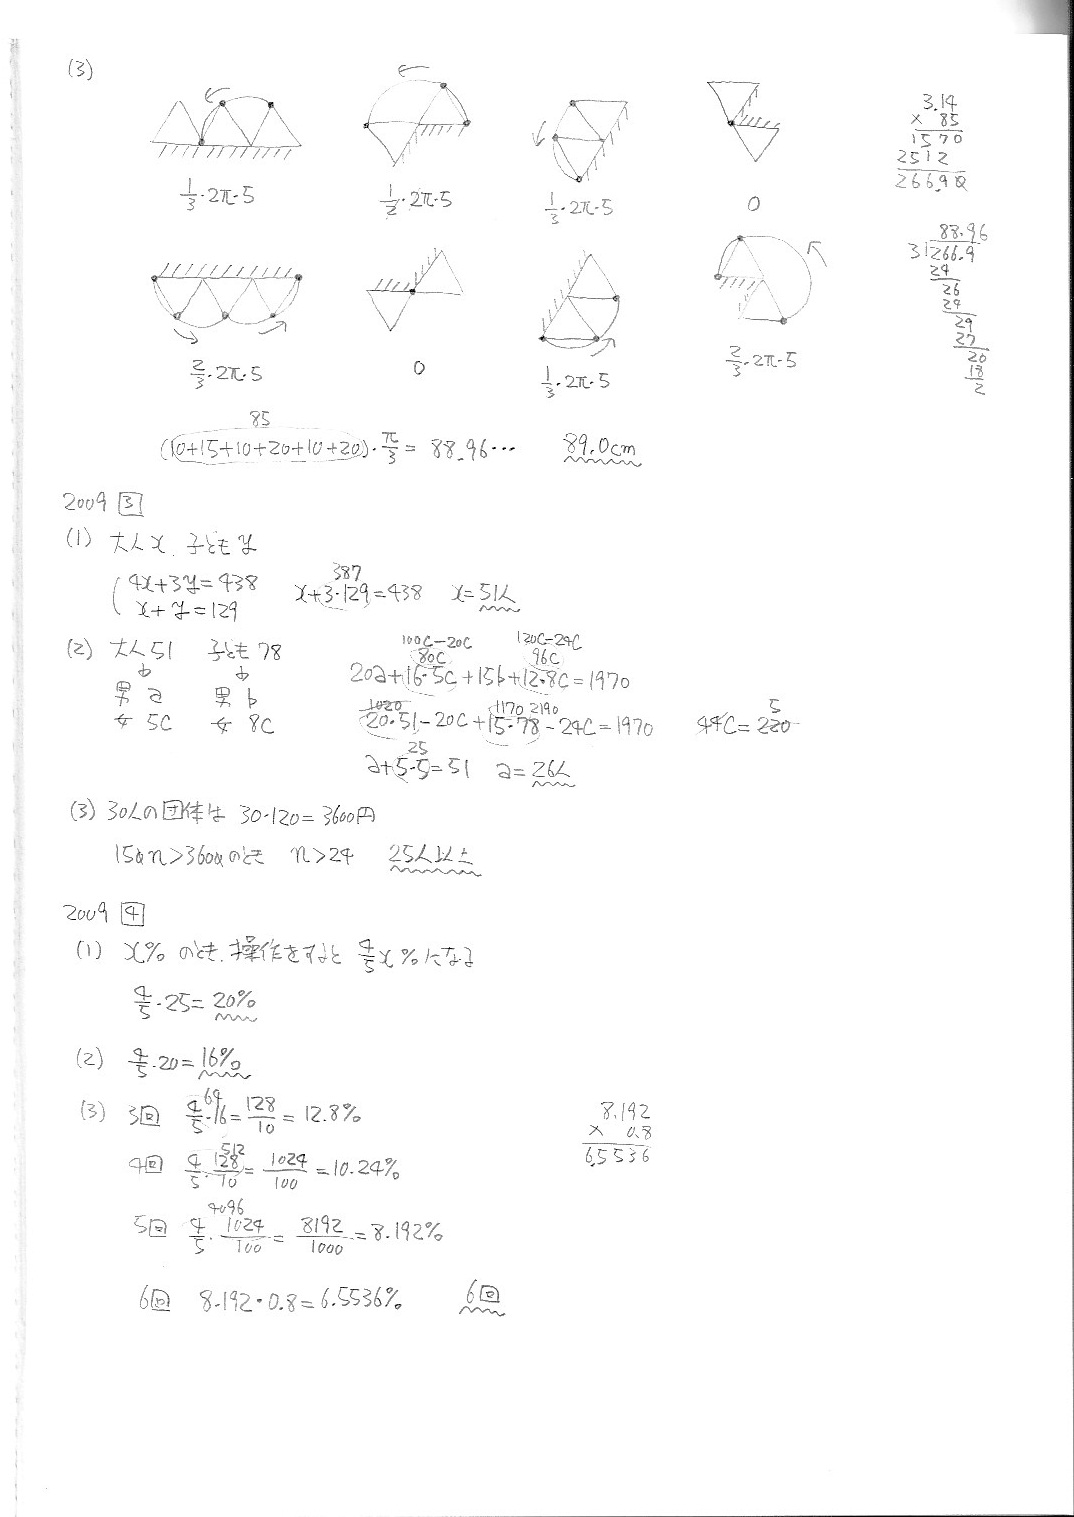 (3)
1/3・2π・5
1/2・2π・5
1/3・2π・5
0
3.14
× 85
1570
2512
266.90
2/3・2π・5
0
1/3・2π・5
2/3・2π・5
88.96
3)266.9
24
26
24
29
27
20
18
2
85
(10+15+10+20+10+20)・π/3 = 88.96… 89.0cm
2009 3
(1) 大人x、子どもy
4x+3y=438
x+y=129
387
x+3・129=438 x=51人
(2) 大人51 子ども78
男 a 男 b
女 5c 女 8c
100c-20c 120c-24c
80c 96c
20a+16・5c+15b+12・8c=1970
1020 1170 2190
20・51-20c+15・78-24c=1970
5
44c=220
25
a+5・5=51 a=26人
(3) 30人の団体は 30・120=3600円
150n>3600のとき n>24 25人以上
2009 4
(1) x% のとき、操作をすると 4/5 x%になる
4/5・25=20%
(2) 4/5・20=16%
(3) 3回 4/5・16=128/10=12.8%
64
4回 4/5・128/10=1024/100=10.24%
512
5回 4/5・1024/100=8192/1000=8.192%
4096
6回 8.192・0.8=6.5536% 6回
8.192
× 0.8
6.5536